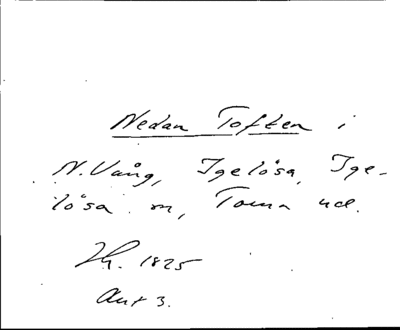 Nedan Toften i
N. Vång, Igelösa, Ige-
lösa sn, Torna hd.
1825
Akt 3.